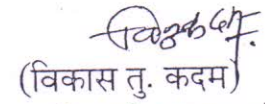 (विकास तु. कदम)